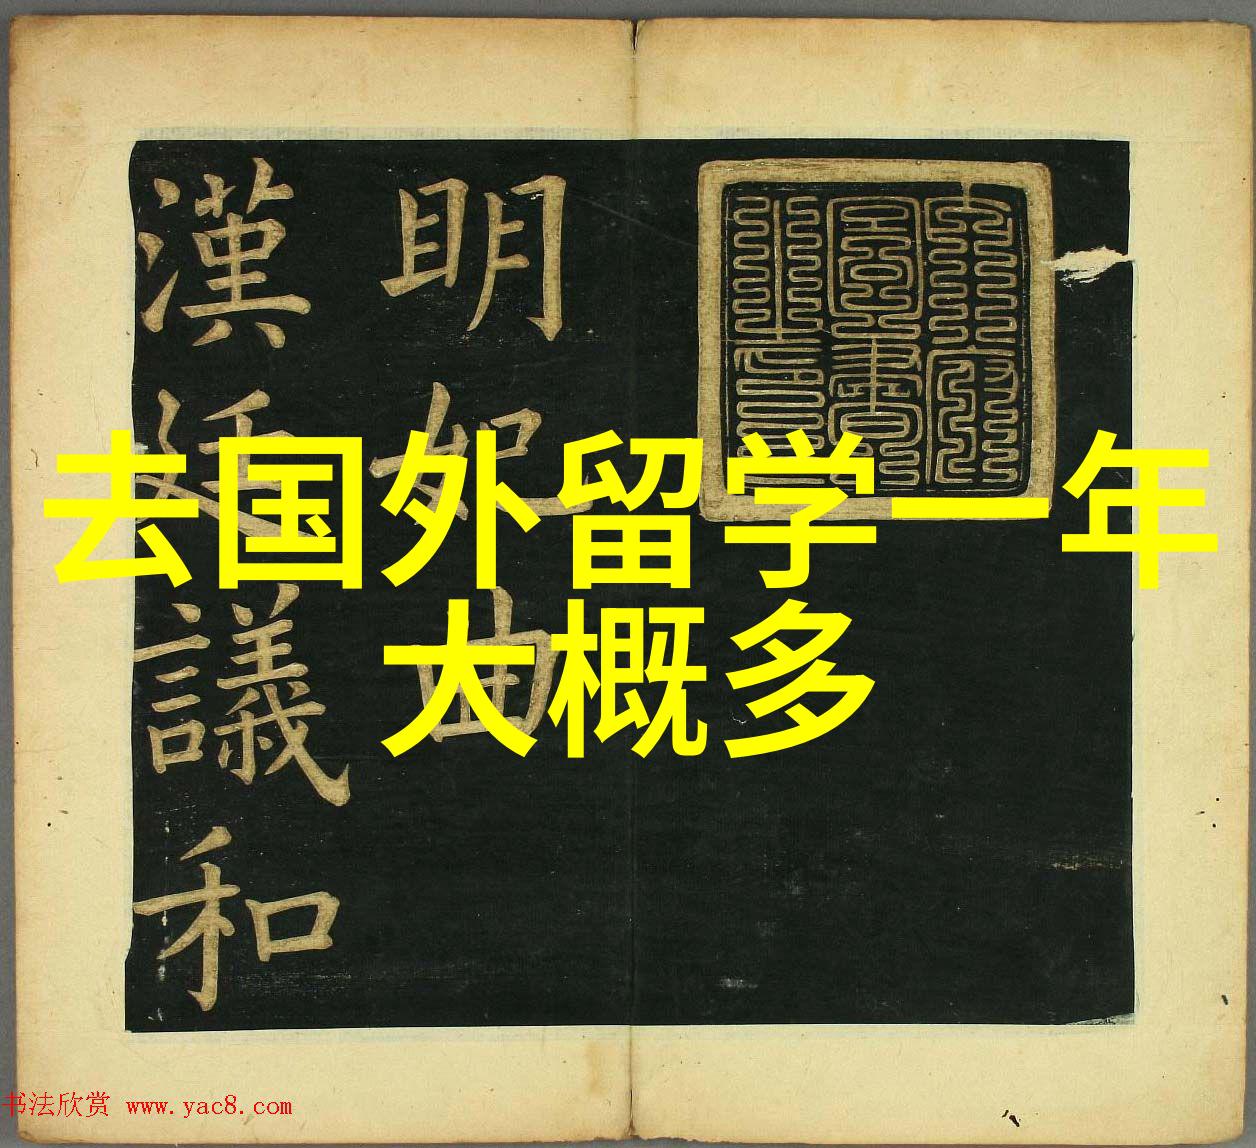 去国外留学一年
大概多
明妃曲
漢廷議和
书法欣赏 www.yac8.com